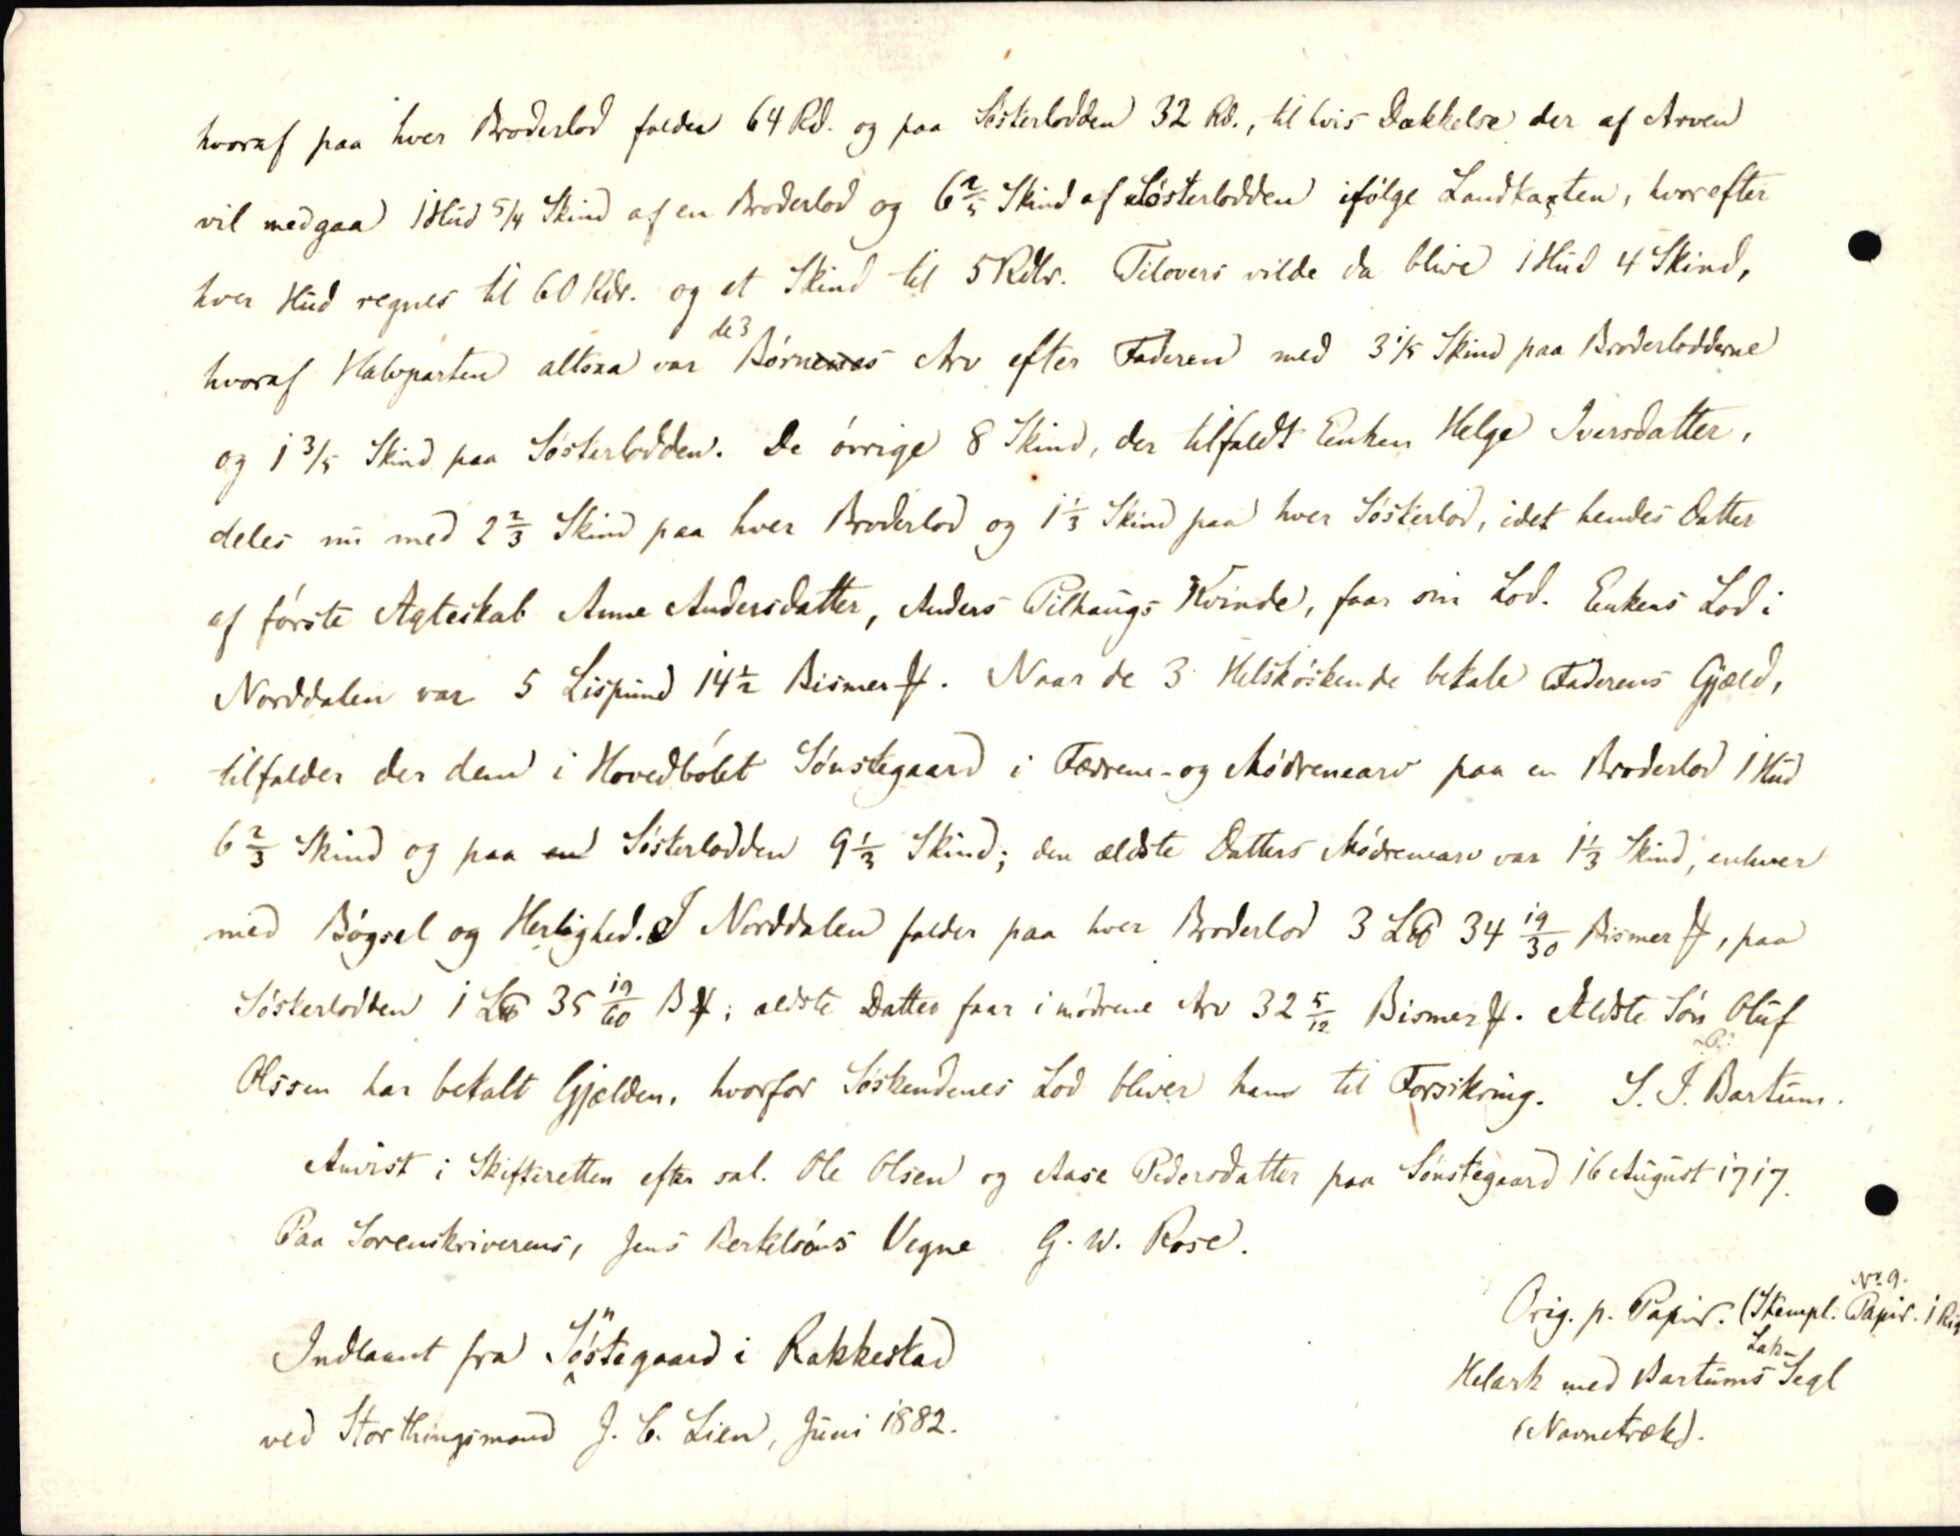 hvoraf paa hver Broderlod falder 64 Rd. og paa Søsterlodden 32 Rd., til hvis Dækkelse der af Arven
vil medgaa 1 Hud 5/4 Skind af en Broderlod og 6 2/5 Skind af Søsterlodden ifølge Landkaxten, hvorefter
hver Hud regnes til 60 Rdr. og et Skind til 5 Rdlr. Tilovers vilde da blive 1 Hud 4 Skind,
hvoraf Halvparten altsaa var de 3 Børns Arv efter Faderen med 3 1/5 Skind paa Broderlodderne
og 1 3/5 Skind paa Søsterlodden. De øvrige 8 Skind, der tilfaldt Enken Helge Iversdatter,
deles nu med 2 2/3 Skind paa hver Broderlod og 1 1/3 Skind paa hver Søsterlod, idet hendes Datter
af første Ægteskab Anne Andersdatter, Anders Pilhaugs Kvinde, faar sin Lod. Enkens Lod i
Norddalen var 5 Lispund 14 1/2 Bismer ℔. Naar de 3 Helsøskende betale Faderens Gjæld,
tilfalder der dem i Hovedbølet Sønstegaard i Fædrene- og Mødrenearv paa en Broderlod 1 Hud
6 2/3 Skind og paa Søsterlodden 9 1/3 Skind; den ældste Datters Mødrenearv var 1 1/3 Skind, enhver
med Bøgsel og Herlighed. I Norddalen falder paa hver Broderlod 3 L℔ 34 19/30 Bismer ℔, paa
Søsterlodden 1 L℔ 35 19/60 B℔; ældste Datter faar i mødrene Arv 32 5/12 Bismer ℔. Ældste Søn Oluf
Olssen har betalt Gjælden, hvorfor Søskendenes Lod bliver ham til Forsikring. S. J. Bartum.
Anvist i Skifteretten efter sal. Ole Olsen og Aase Pedersdatter paa Sønstegaard 16 August 1717.
Paa Sorenskriverens, Jens Bertelsøns Vegne G. W. Rose.
Orig. p. Papir. (Stempl. Papir. No 9. 1
Indlaant fra Sønstegaard i Rakkestad
Helark med Bartums Lak-Segl
ved Storthingsmand J. C. Lien, Juni 1882.
(Navnetræk).